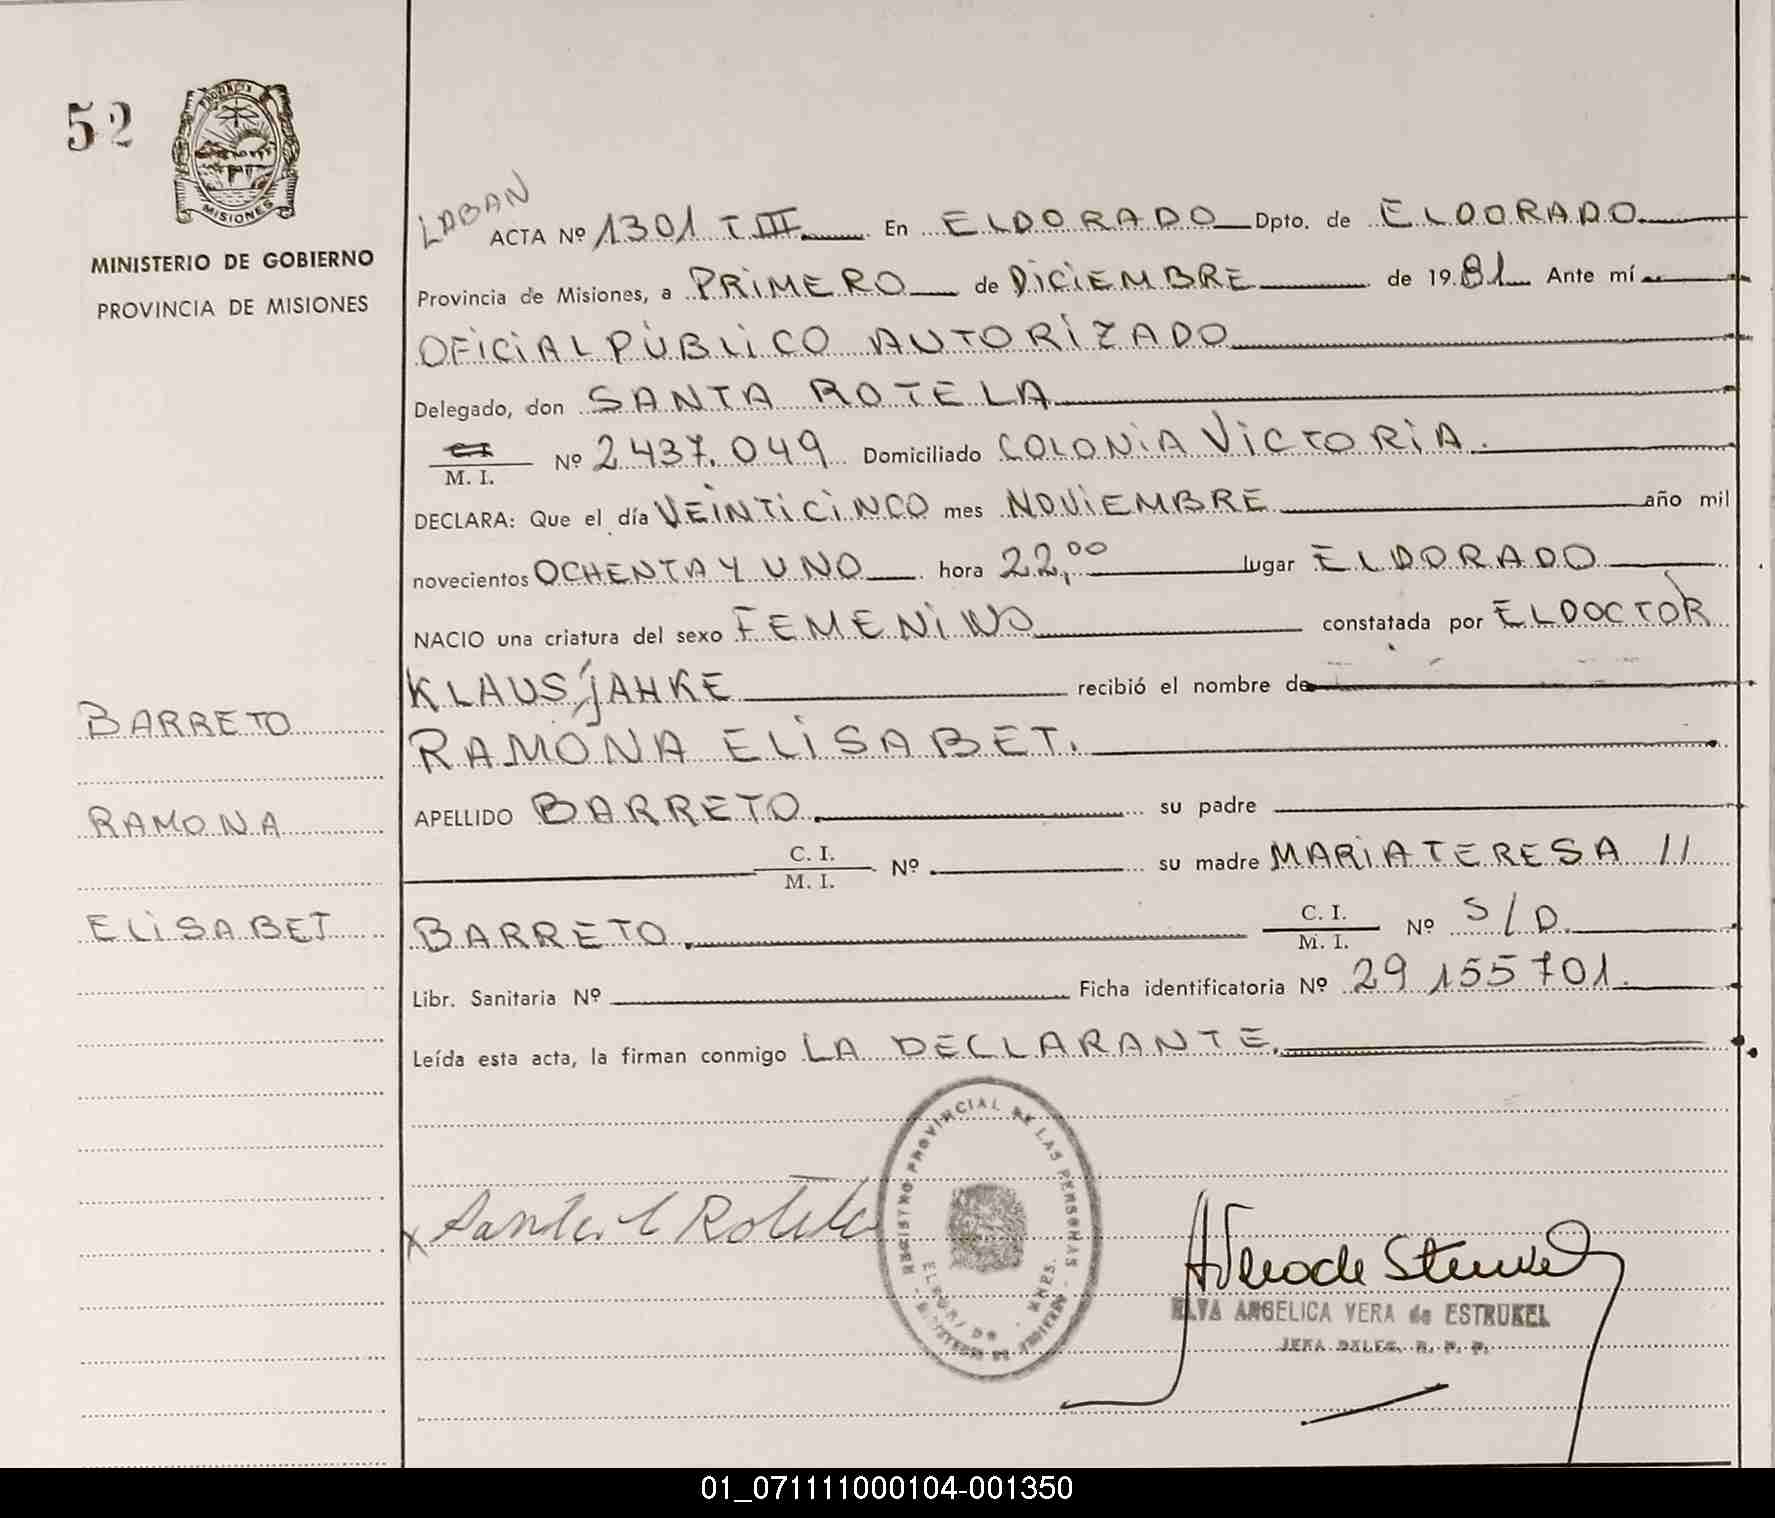 52
PROVINCIA
MISIONES
MINISTERIO DE GOBIERNO
PROVINCIA DE MISIONES
BARRETO
RAMONA
ELISABET
LABAN
ACTA Nº 1301 T III En ELDORADO Dpto. de ELDORADO
Provincia de Misiones, a PRIMERO de DICIEMBRE de 1981 Ante mí
OFICIAL PÚBLICO AUTORIZADO
Delegado, don SANTA ROTELA
C.I.
M. I. Nº 2437.049 Domiciliado COLONIA VICTORIA.
DECLARA: Que el día VEINTICINCO mes NOVIEMBRE año mil
novecientos OCHENTA Y UNO hora 22,00 lugar ELDORADO
NACIO una criatura del sexo FEMENINO constatada por EL DOCTOR
KLAUS JAHKE recibió el nombre de
RAMONA ELISABET.
APELLIDO BARRETO. su padre
C. I.
M. I. Nº su madre MARIA TERESA //
BARRETO. C. I.
M. I. Nº S/D.
Libr. Sanitaria Nº Ficha identificatoria Nº 29 155701.
Leída esta acta, la firman conmigo LA DECLARANTE.
REGISTRO PROVINCIAL DE LAS PERSONAS
ELDORADO
x Santa Rotela
ELVA ANGELICA VERA de ESTRUKEL
JEFA DELEG. R. P. P.
01_071111000104-001350